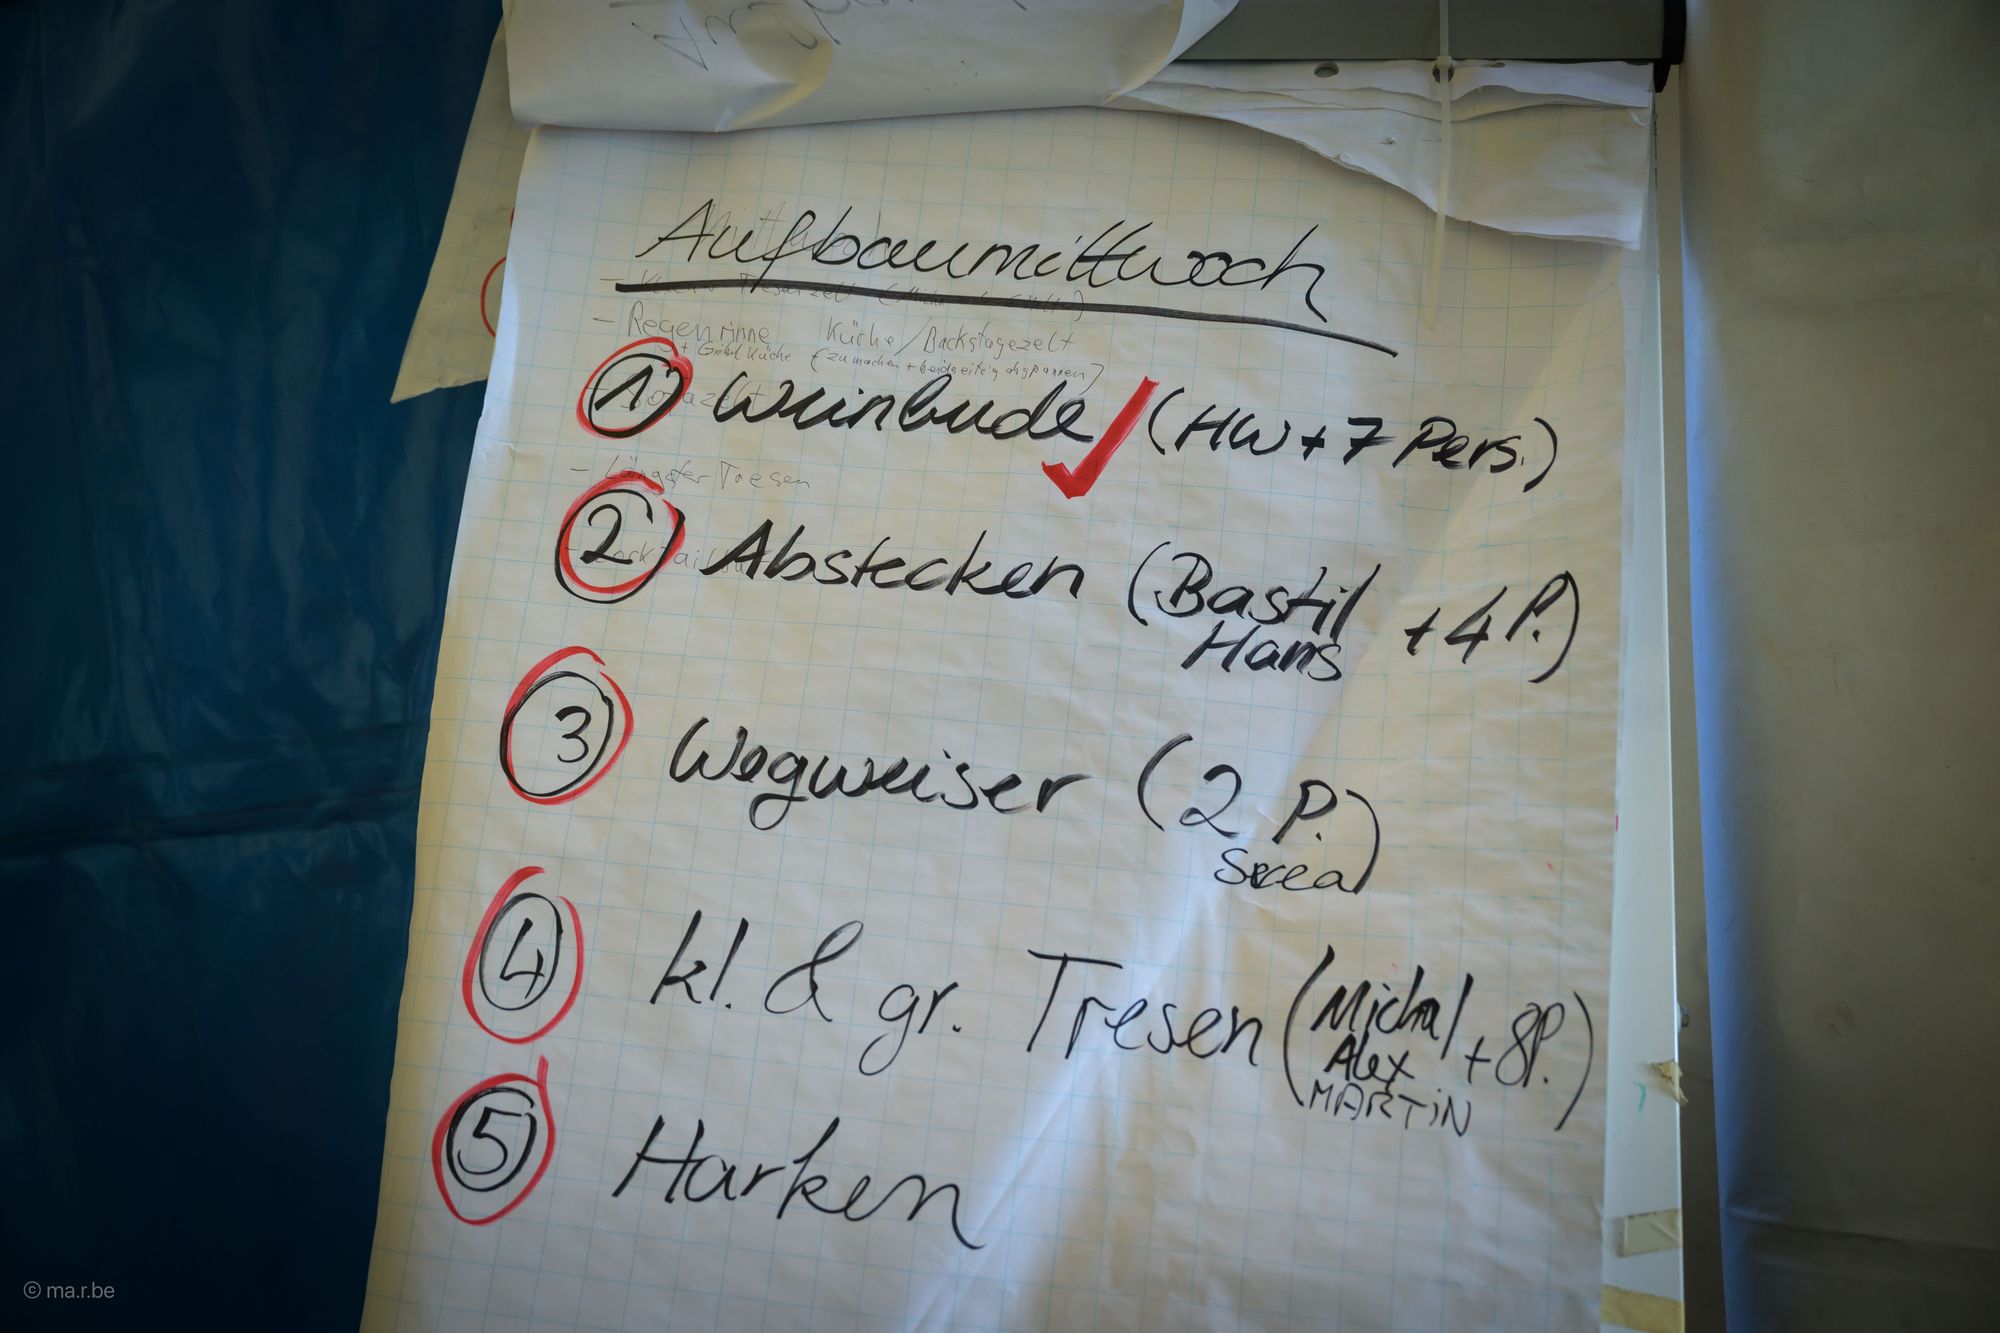 Aufbaumittwoch
– Regenrinne Küche/Backstagezelt
+ Giebel Küche (zumachen + beidseitig abspannen)
1 Weinbude (HW + 7 Pers.)
– Längster Tresen
2 Abstecken (Bastil + 4 P.)
Hans
3 Wegweiser (2 P.)
4 kl. & gr. Tresen (Michal + 8P.)
Alex
MARTiN
5 Harken
© ma.r.be